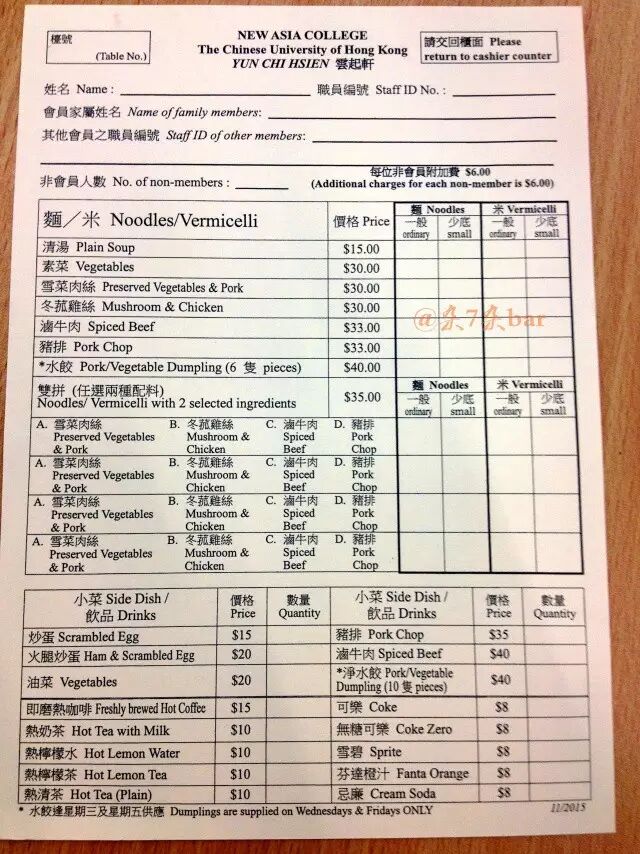 檯號
(Table No.)
NEW ASIA COLLEGE
The Chinese University of Hong Kong
YUN CHI HSIEN 雲起軒
請交回櫃面 Please
return to cashier counter
姓名 Name : 職員編號 Staff ID No. :
會員家屬姓名 Name of family members:
其他會員之職員編號 Staff ID of other members:
非會員人數 No. of non-members :
每位非會員附加費 $6.00
(Additional charges for each non-member is $6.00)
麵／米 Noodles/Vermicelli 價格 Price 麵 Noodles 米 Vermicelli
一般 少底 一般 少底
ordinary small ordinary small
清湯 Plain Soup $15.00
素菜 Vegetables $30.00
雪菜肉絲 Preserved Vegetables & Pork $30.00
冬菰雞絲 Mushroom & Chicken $30.00
滷牛肉 Spiced Beef $33.00
豬排 Pork Chop $33.00
*水餃 Pork/Vegetable Dumpling (6 隻 pieces) $40.00
@朵7朵bar
雙拼 (任選兩種配料)
Noodles/ Vermicelli with 2 selected ingredients $35.00
麵 Noodles 米 Vermicelli
一般 少底 一般 少底
ordinary small ordinary small
A. 雪菜肉絲 B. 冬菰雞絲 C. 滷牛肉 D. 豬排
Preserved Vegetables Mushroom & Spiced Pork
& Pork Chicken Beef Chop
A. 雪菜肉絲 B. 冬菰雞絲 C. 滷牛肉 D. 豬排
Preserved Vegetables Mushroom & Spiced Pork
& Pork Chicken Beef Chop
A. 雪菜肉絲 B. 冬菰雞絲 C. 滷牛肉 D. 豬排
Preserved Vegetables Mushroom & Spiced Pork
& Pork Chicken Beef Chop
A. 雪菜肉絲 B. 冬菰雞絲 C. 滷牛肉 D. 豬排
Preserved Vegetables Mushroom & Spiced Pork
& Pork Chicken Beef Chop
小菜 Side Dish / 價格 數量 小菜 Side Dish / 價格 數量
飲品 Drinks Price Quantity 飲品 Drinks Price Quantity
炒蛋 Scrambled Egg $15 豬排 Pork Chop $35
火腿炒蛋 Ham & Scrambled Egg $20 滷牛肉 Spiced Beef $40
油菜 Vegetables $20 *淨水餃 Pork/Vegetable
Dumpling (10 隻 pieces) $40
即磨熱咖啡 Freshly brewed Hot Coffee $15 可樂 Coke $8
熱奶茶 Hot Tea with Milk $10 無糖可樂 Coke Zero $8
熱檸檬水 Hot Lemon Water $10 雪碧 Sprite $8
熱檸檬茶 Hot Lemon Tea $10 芬達橙汁 Fanta Orange $8
熱清茶 Hot Tea (Plain) $10 忌廉 Cream Soda $8
* 水餃逢星期三及星期五供應 Dumplings are supplied on Wednesdays & Fridays ONLY
11/2015